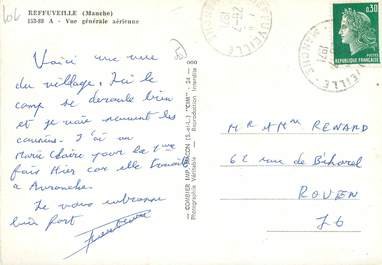 REFFUVEILLE (Manche)
153-88 A - Vue générale aérienne
Voici une vue
du village. Ici le
camp se déroule bien
et je vais souvent les
cousins. J'ai vu
Marie Claire pour la 1ère
fois Hier car elle travaille
à Avranches.
Je vous embrasse
bien fort
COMBIER IMP. MACON (S.-et-L.) "CIM"
Photographie Véritable - Reproduction Interdite
0,30
REPUBLIQUE FRANCAISE
REFFUVEILLE
MANCHE
Mr & Mme RENARD
62 rue de Bihorel
ROUEN
76